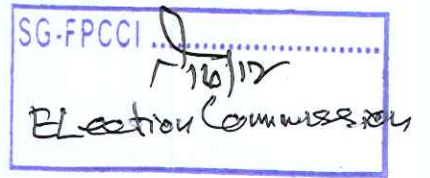 SG-FPCCI ..............................
16/12
Election Commission